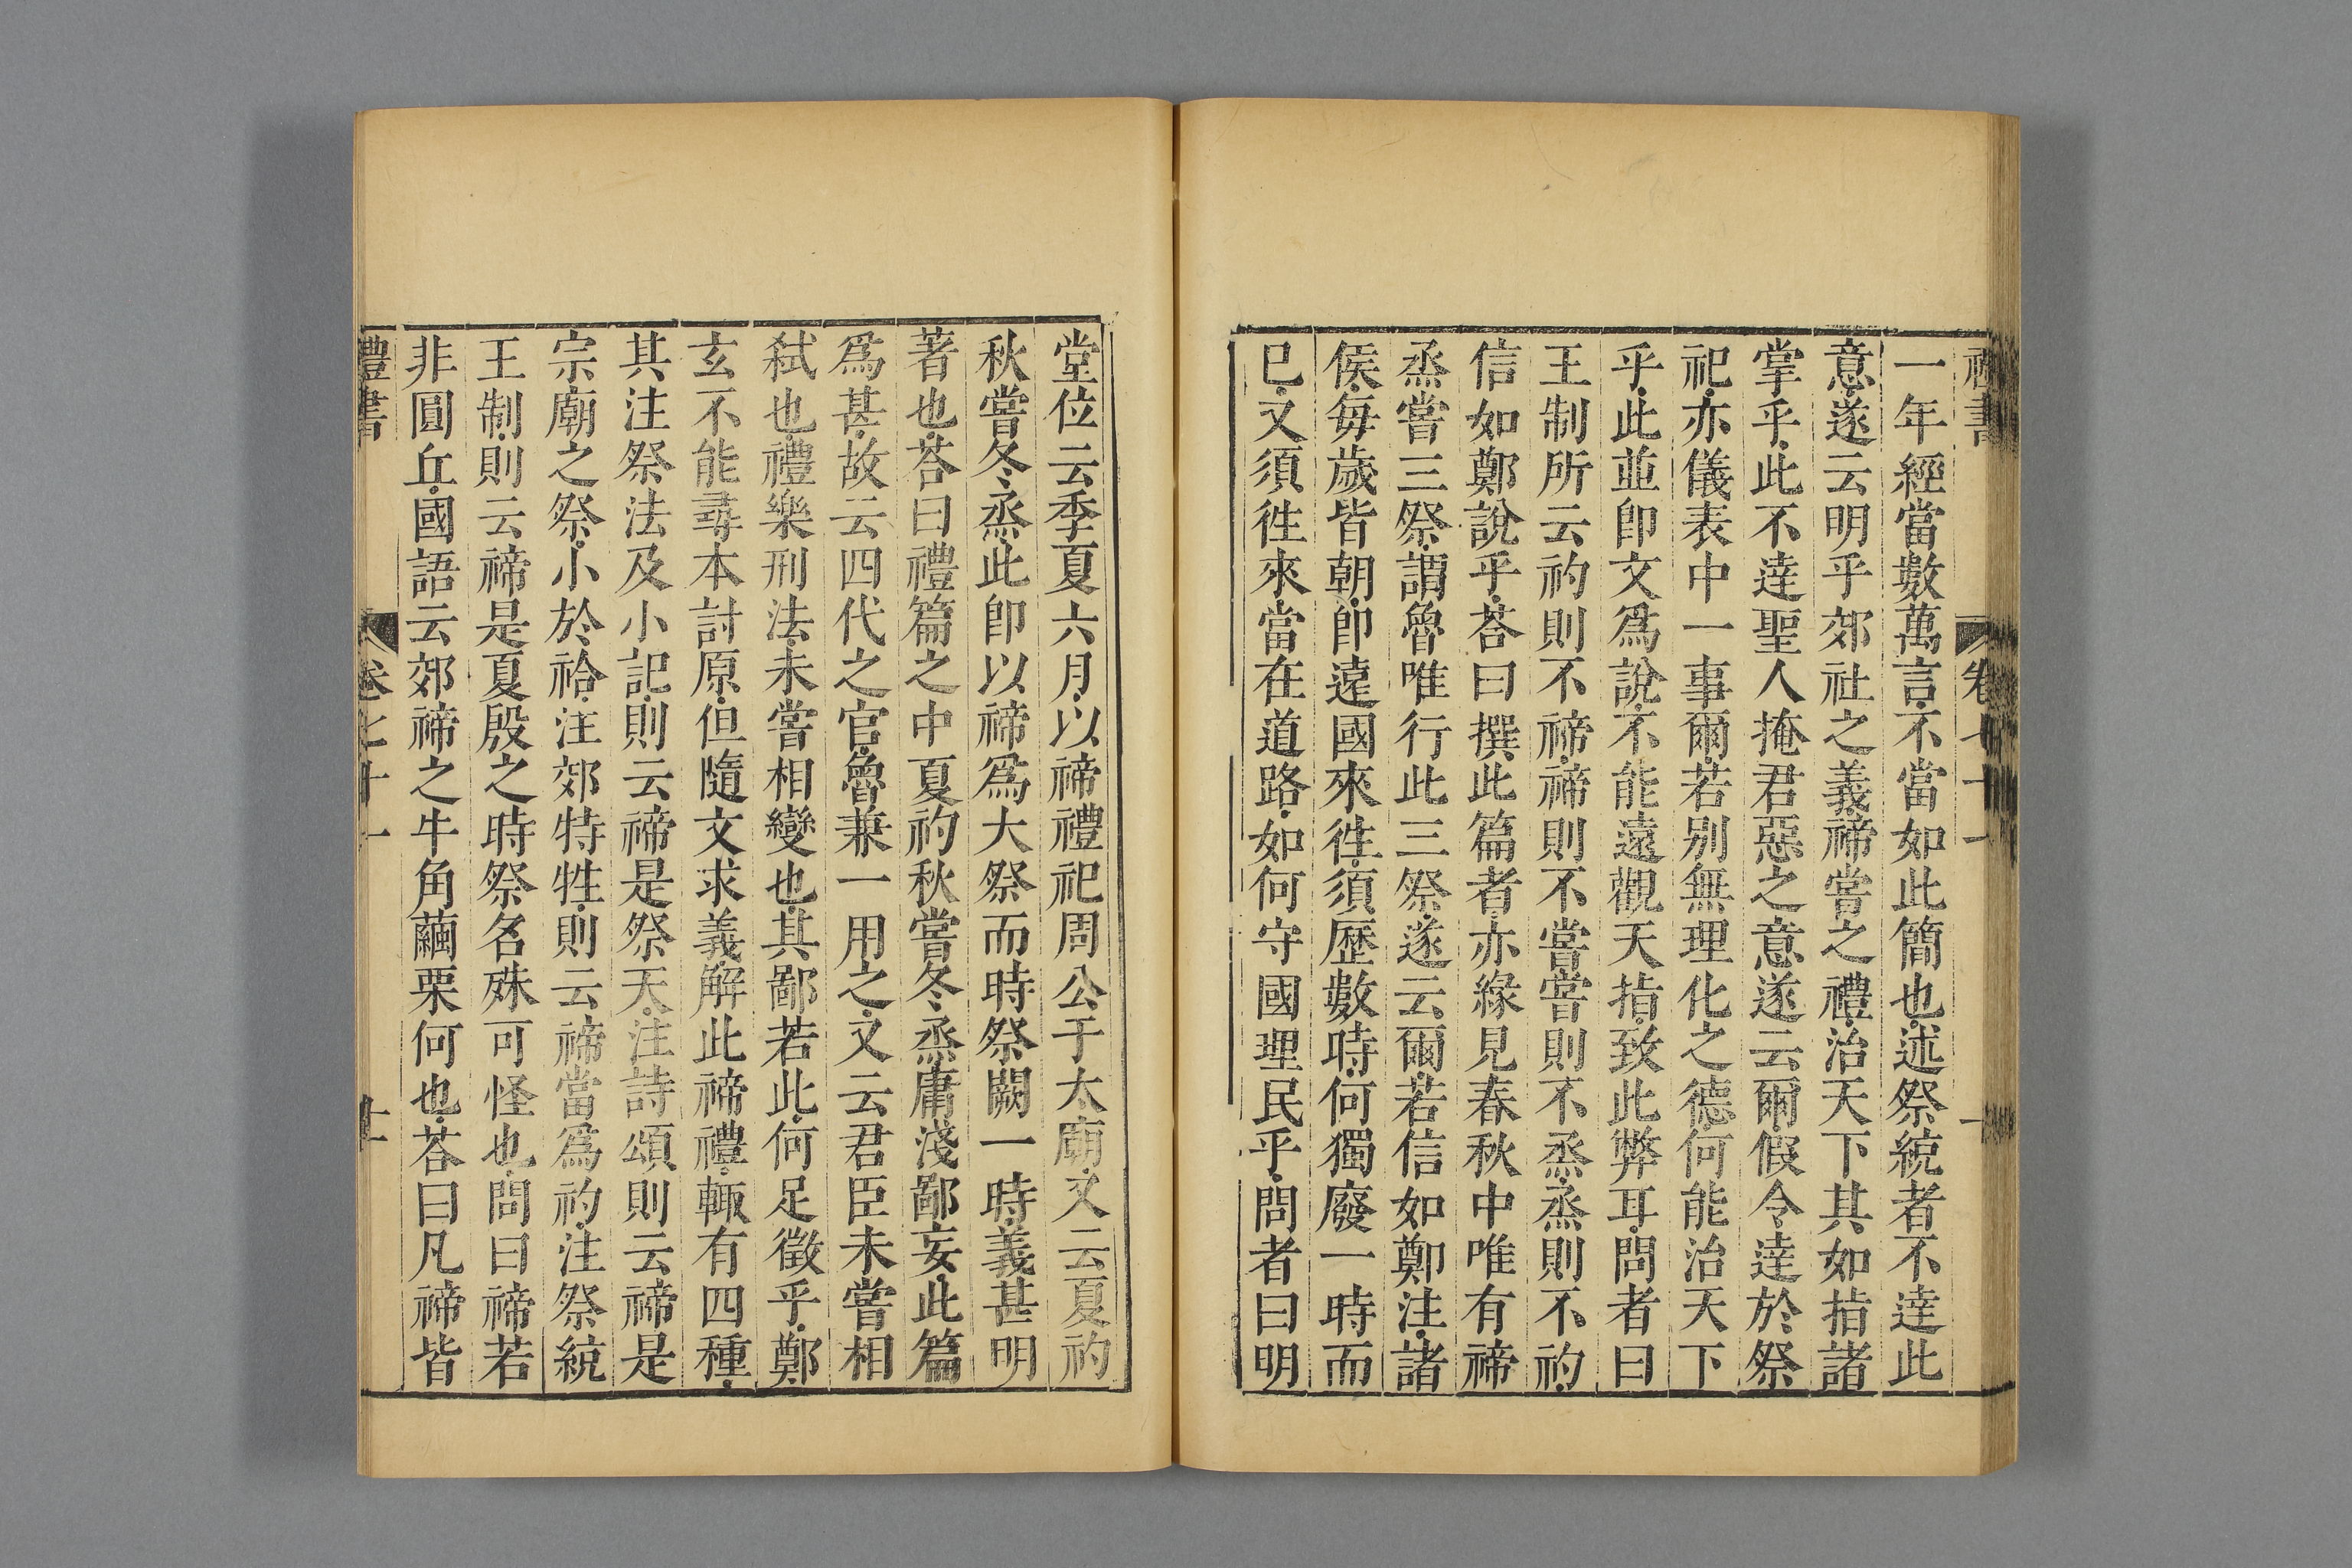 禮書
卷七十一
一年經當數萬言不當如此簡也述祭統者不達此
意遂云明乎郊社之義禘嘗之禮治天下其如指諸
掌乎此不達聖人掩君惡之意遂云爾假令達於祭
祀亦儀表中一事爾若別無理化之德何能治天下
乎此並卽文爲說不能遠觀天指致此弊耳問者曰
王制所云礿則不禘禘則不嘗嘗則不烝烝則不礿
信如鄭說乎荅曰撰此篇者亦緣見春秋中唯有禘
烝嘗三祭謂魯唯行此三祭遂云爾若信如鄭注諸
侯每歲皆朝卽遠國來徃須歷數時何獨廢一時而
已又須徃來當在道路如何守國理民乎問者曰明
堂位云季夏六月以禘禮祀周公于太廟又云夏礿
秋嘗冬烝此卽以禘爲大祭而時祭闕一時義甚明
著也荅曰禮篇之中夏礿秋嘗冬烝庸淺鄙妄此篇
爲甚故云四代之官魯兼一用之又云君臣未嘗相
弑也禮樂刑法未嘗相變也其鄙若此何足徵乎鄭
玄不能尋本討原但隨文求義解此禘禮輙有四種
其注祭法及小記則云禘是祭天注詩頌則云禘是
宗廟之祭小於祫注郊特牲則云禘當爲礿注祭統
王制則云禘是夏殷之時祭名殊可怪也問曰禘若
非圓丘國語云郊禘之牛角繭栗何也荅曰凡禘皆
禮書
卷七十一
十